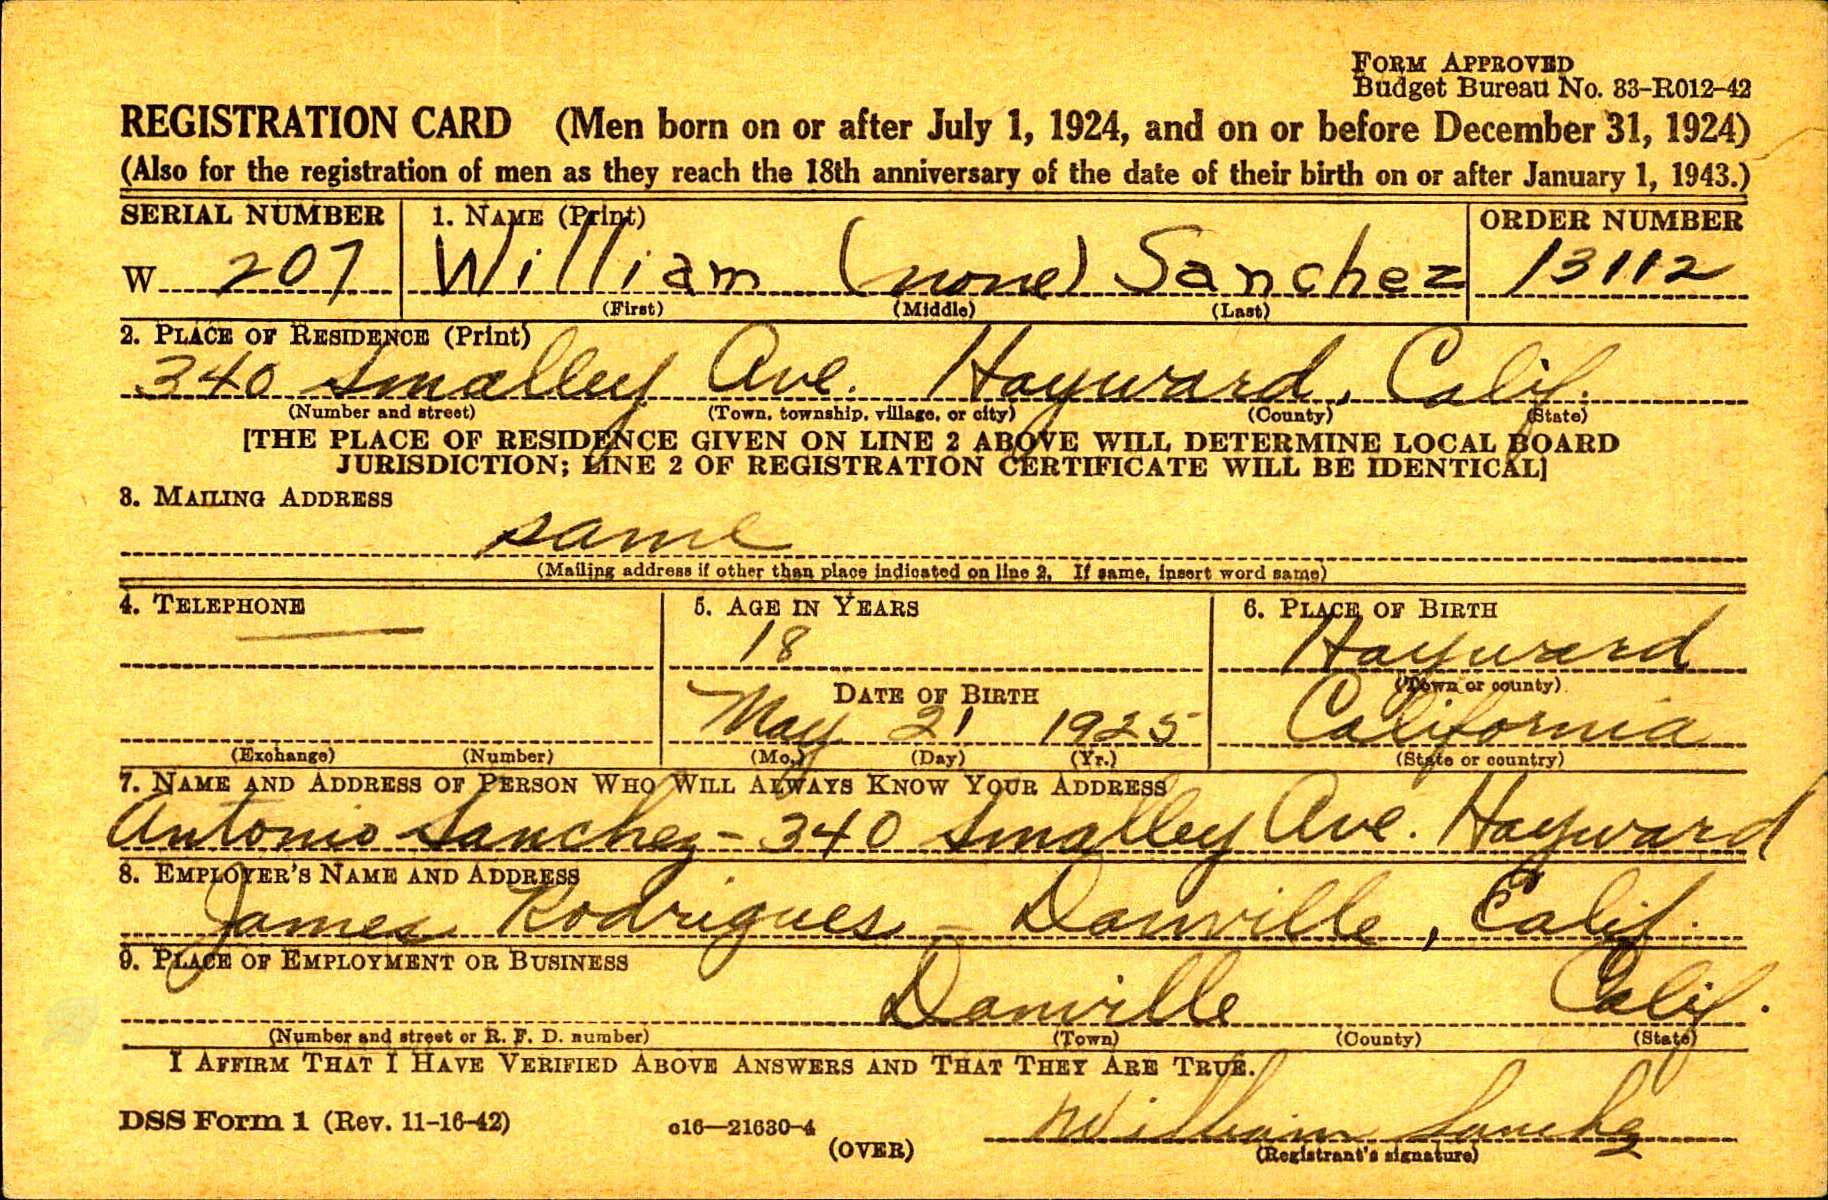 FORM APPROVED
Budget Bureau No. 33-R012-42
REGISTRATION CARD (Men born on or after July 1, 1924, and on or before December 31, 1924)
(Also for the registration of men as they reach the 18th anniversary of the date of their birth on or after January 1, 1943.)
SERIAL NUMBER 1. NAME (Print) ORDER NUMBER
W 207 William (none) Sanchez 13112
(First) (Middle) (Last)
2. PLACE OF RESIDENCE (Print)
340 Smalley Ave. Hayward, Calif.
(Number and street) (Town, township, village, or city) (County) (State)
[THE PLACE OF RESIDENCE GIVEN ON LINE 2 ABOVE WILL DETERMINE LOCAL BOARD
JURISDICTION; LINE 2 OF REGISTRATION CERTIFICATE WILL BE IDENTICAL]
3. MAILING ADDRESS
same
(Mailing address if other than place indicated on line 2. If same, insert word same)
4. TELEPHONE 5. AGE IN YEARS 6. PLACE OF BIRTH
18 Hayward
(Town or county)
DATE OF BIRTH
May 21 1925 California
(Exchange) (Number) (Mo.) (Day) (Yr.) (State or country)
7. NAME AND ADDRESS OF PERSON WHO WILL ALWAYS KNOW YOUR ADDRESS
Antonio Sanchez - 340 Smalley Ave. Hayward
8. EMPLOYER'S NAME AND ADDRESS
James Rodrigues - Danville, Calif.
9. PLACE OF EMPLOYMENT OR BUSINESS
Danville Calif.
(Number and street or R. F. D. number) (Town) (County) (State)
I AFFIRM THAT I HAVE VERIFIED ABOVE ANSWERS AND THAT THEY ARE TRUE.
William Sanchez
DSS Form 1 (Rev. 11-16-42) c16—21630-4
(OVER) (Registrant's signature)